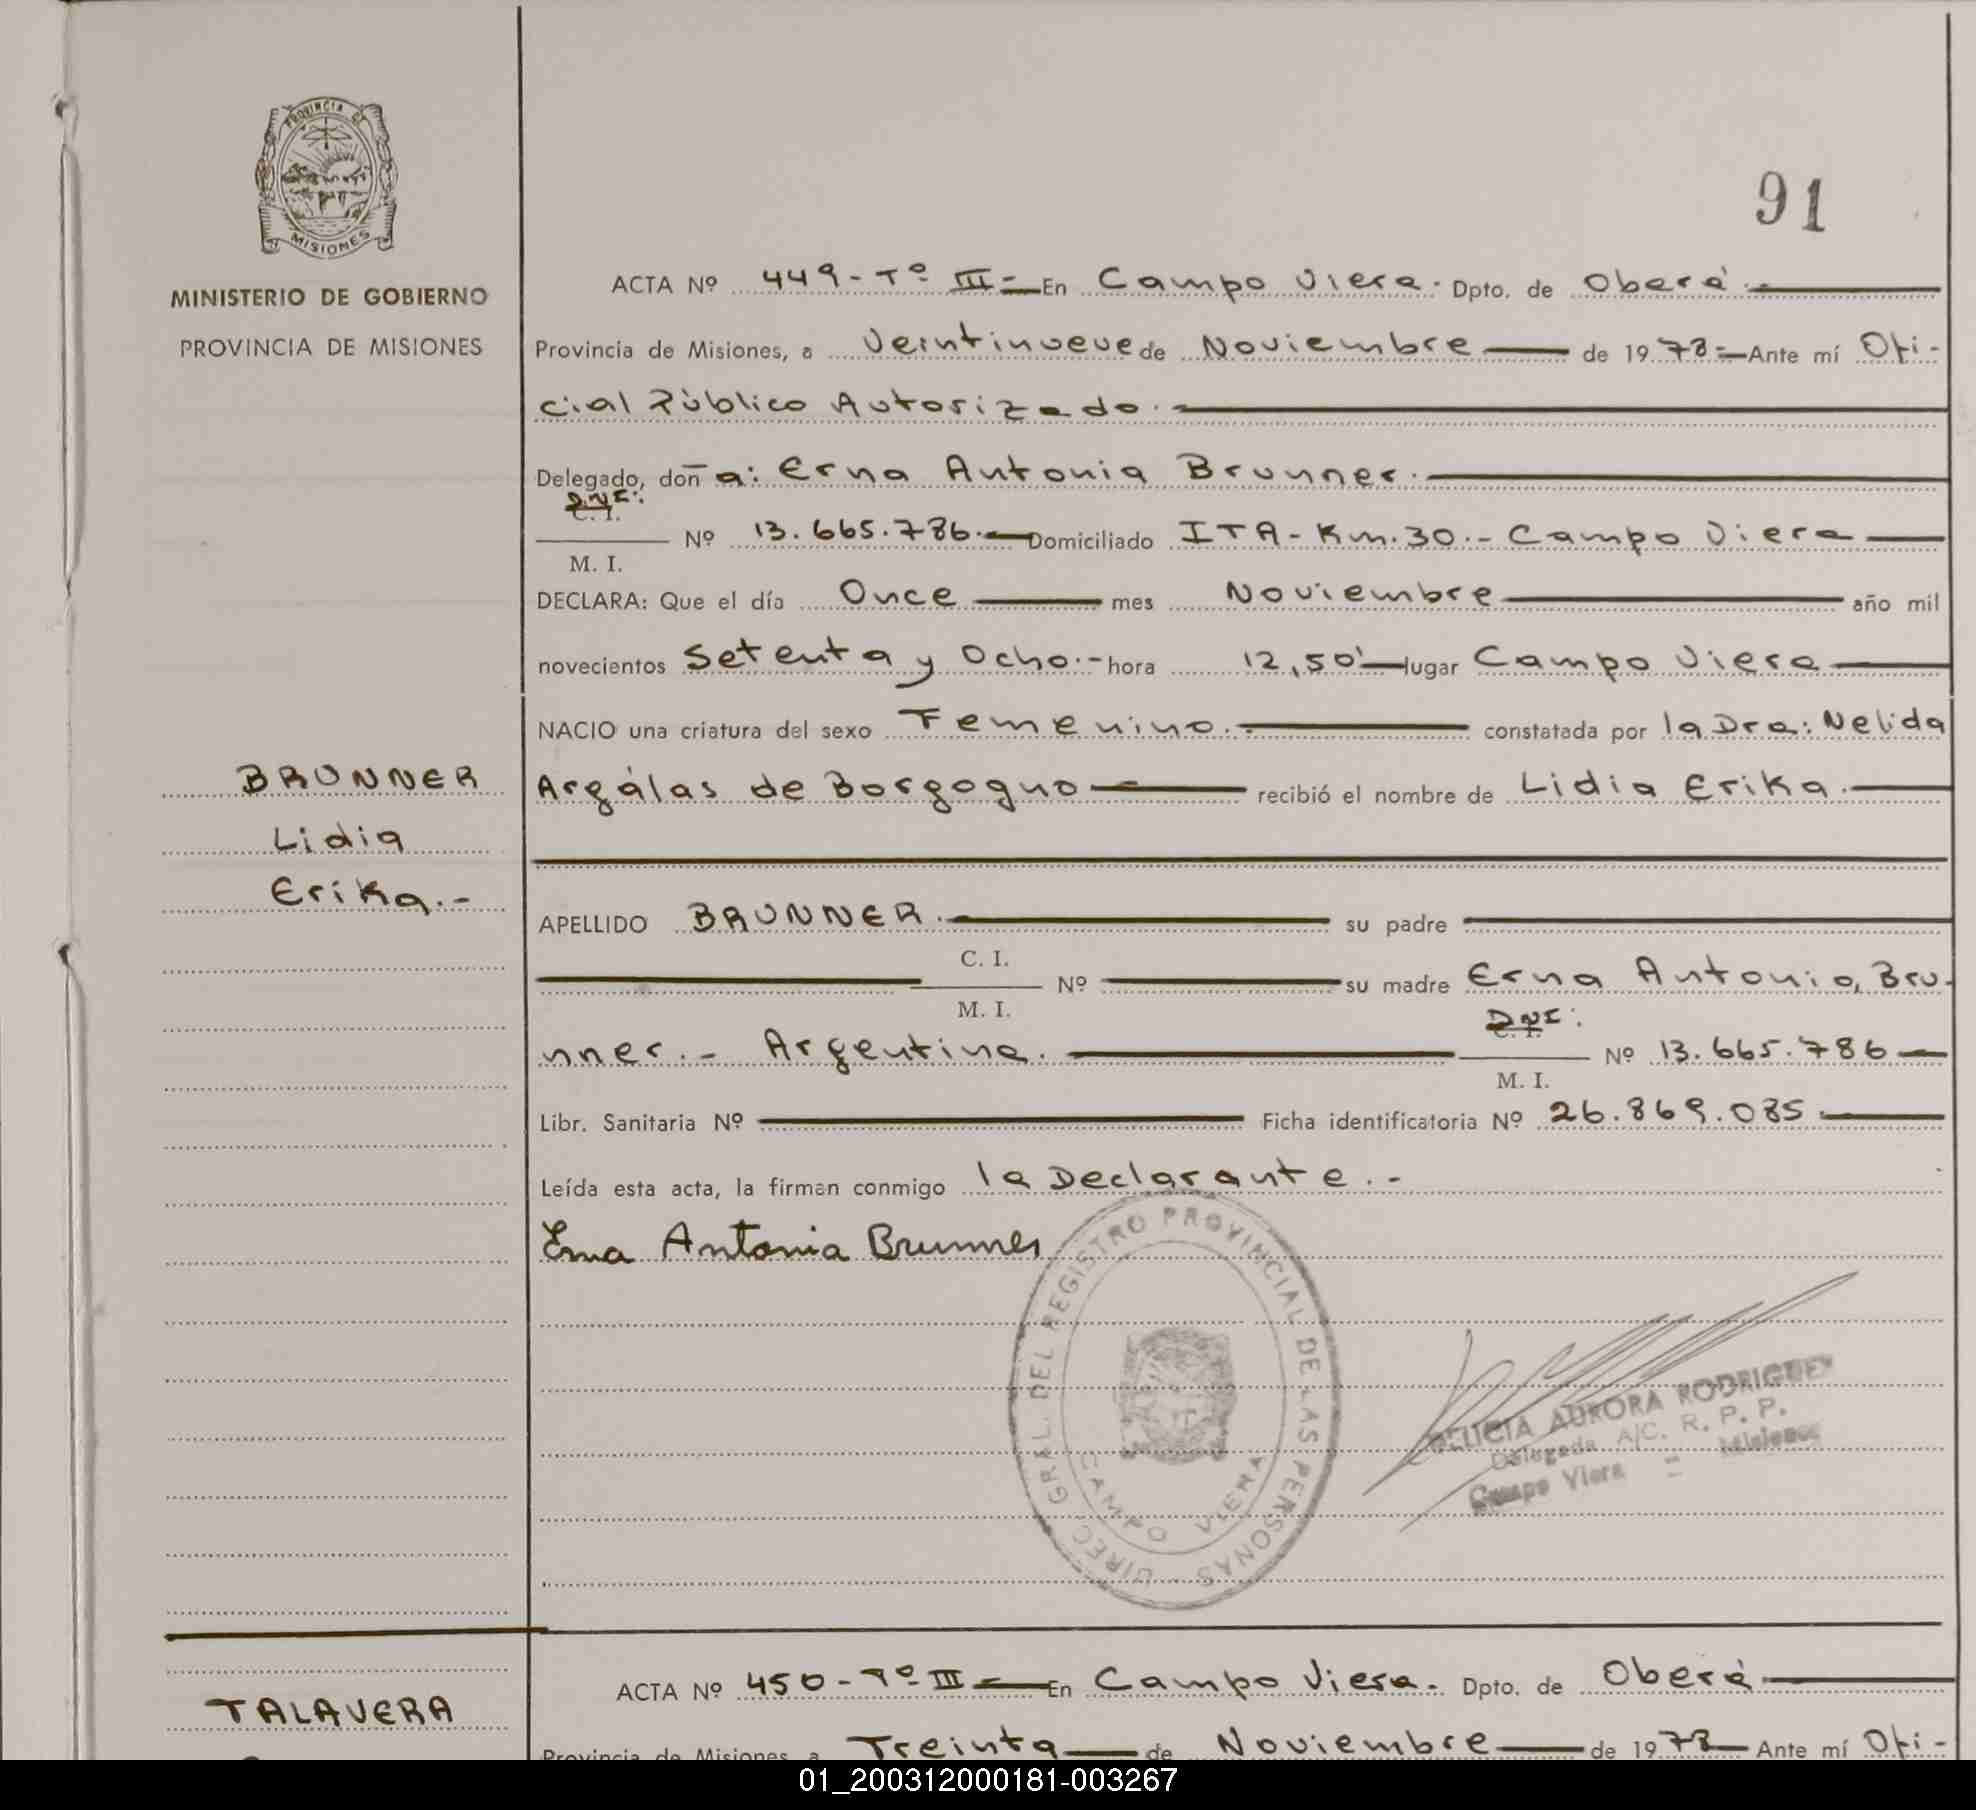 PROVINCIA DE
MISIONES
MINISTERIO DE GOBIERNO
PROVINCIA DE MISIONES
91
ACTA Nº 449 - Tº III = En Campo Viera. Dpto. de Oberá.-
Provincia de Misiones, a Veintinueve de Noviembre de 1978 = Ante mí Ofi-
cial Público Autorizado.-
Delegado, doña: Erna Antonia Brunner.
DNI:
C. I.
M. I.
Nº 13.665.786.- Domiciliado ITA - Km. 30.- Campo Viera
DECLARA: Que el día Once mes Noviembre año mil
novecientos Setenta y Ocho.- hora 12,50' lugar Campo Viera
NACIO una criatura del sexo Femenino.- constatada por la Dra: Nelida
Argálas de Borgogno recibió el nombre de Lidia Erika.
BRUNNER
Lidia
Erika.-
APELLIDO BRUNNER.- su padre
C. I.
M. I.
Nº su madre Erna Antonia, Bru-
nner.- Argentina.
DNI:
C. I.
M. I.
Nº 13.665.786
Libr. Sanitaria Nº Ficha identificatoria Nº 26.869.085.
Leída esta acta, la firman conmigo la Declarante.-
Erna Antonia Brunner
DIREC GRAL. DEL REGISTRO PROVINCIAL DE LAS PERSONAS -
CAMPO VIERA
FELICIA AURORA RODRIGUEZ
Delegada A/C. R. P. P.
Campo Viera = Misiones
ACTA Nº 450 - Tº III = En Campo Viera. Dpto. de Oberá
TALAVERA
Provincia de Misiones a Treinta de Noviembre de 1978 Ante mí Ofi-
01_200312000181-003267